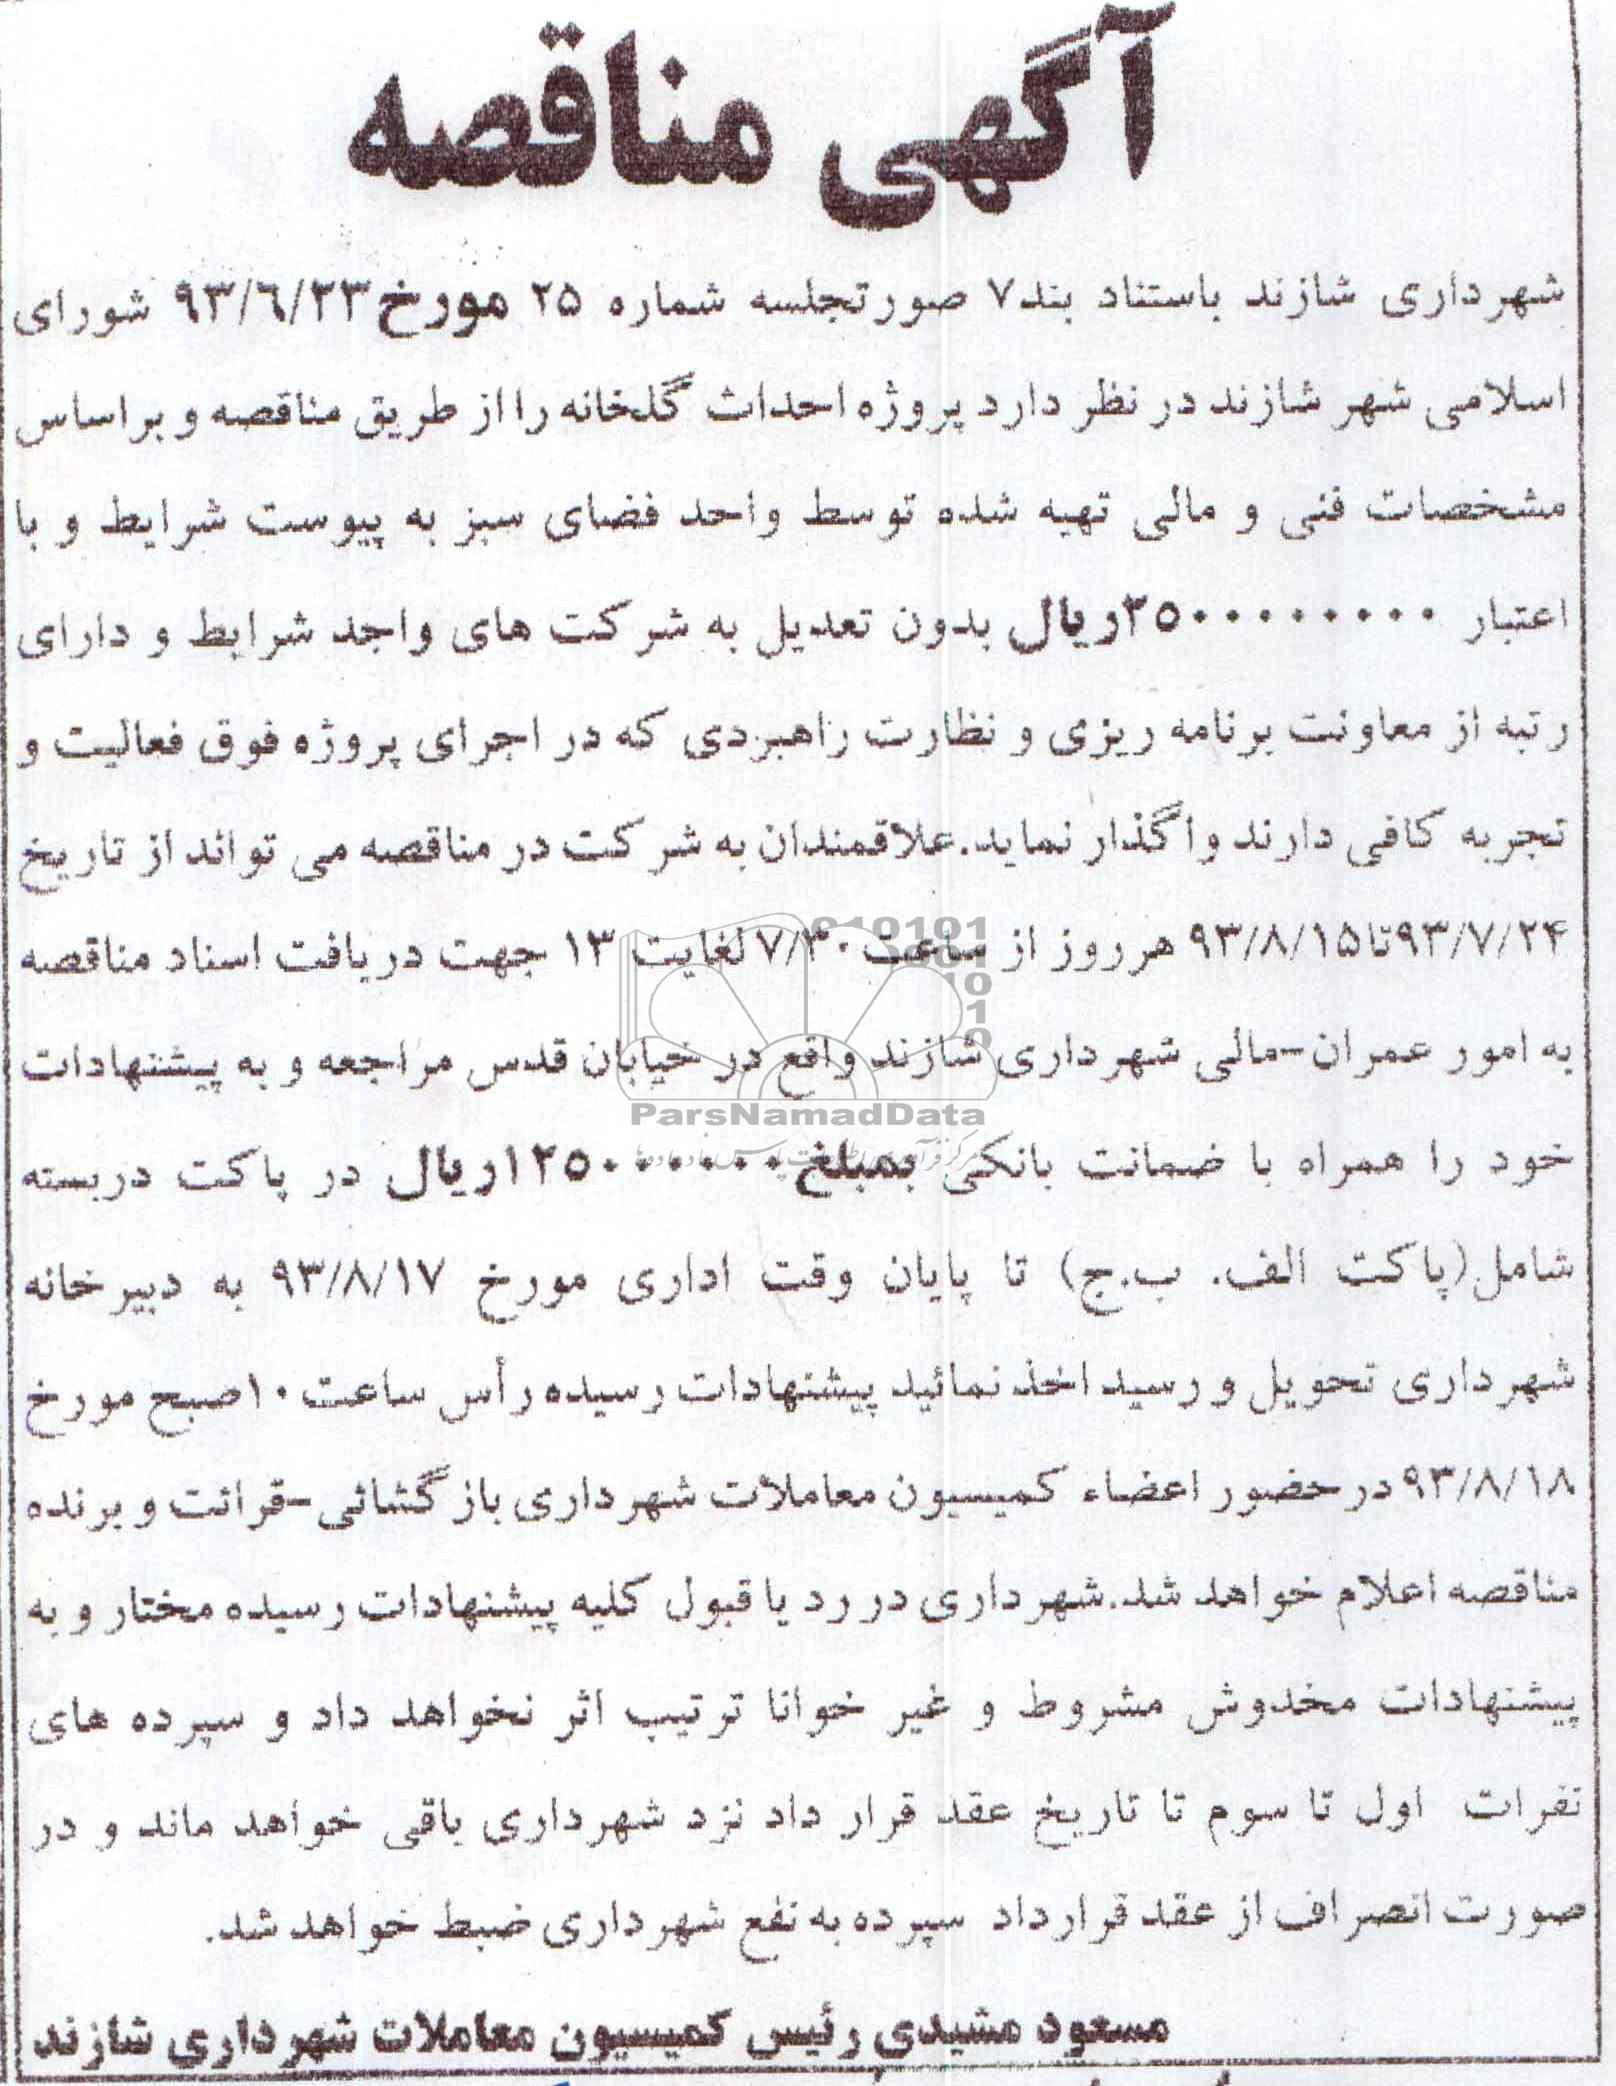 آگهی مناقصه
شهرداری شازند باستناد بند۷ صورتجلسه شماره ۲۵ مورخ۹۳/۶/۲۳ شورای
اسلامی شهر شازند در نظر دارد پروژه احداث گلخانه را از طریق مناقصه و براساس
مشخصات فنی و مالی تهیه شده توسط واحد فضای سبز به پیوست شرایط و با
اعتبار ۲۵۰۰۰۰۰۰۰۰ریال بدون تعدیل به شرکت های واجد شرایط و دارای
رتبه از معاونت برنامه ریزی و نظارت راهبردی که در اجرای پروژه فوق فعالیت و
تجربه کافی دارند واگذار نماید.علاقمندان به شرکت در مناقصه می تواند از تاریخ
۹۳/۷/۲۴تا۹۳/۸/۱۵ هرروز از ساعت ۷/۳۰ لغایت ۱۳ جهت دریافت اسناد مناقصه
به امور عمران-مالی شهرداری شازند واقع در خیابان قدس مراجعه و به پیشنهادات
ParsNamadData
خود را همراه با ضمانت بانکی بمبلغ ۱۲۵۰۰۰۰۰۰ریال در پاکت دربسته
شامل(پاکت الف. ب.ج) تا پایان وقت اداری مورخ ۹۳/۸/۱۷ به دبیرخانه
شهرداری تحویل و رسید اخذ نمائید پیشنهادات رسیده رأس ساعت ۱۰صبح مورخ
۹۳/۸/۱۸در حضور اعضاء کمیسیون معاملات شهرداری بازگشائی-قرائت و برنده
مناقصه اعلام خواهد شد.شهرداری در رد یا قبول کلیه پیشنهادات رسیده مختار و به
پیشنهادات مخدوش مشروط و غیر خوانا ترتیب اثر نخواهد داد و سپرده های
نفرات اول تا سوم تا تاریخ عقد قرار داد نزد شهرداری باقی خواهد ماند و در
صورت انصراف از عقد قرارداد سپرده به نفع شهرداری ضبط خواهد شد.
مسعود مشیدی رئیس کمیسیون معاملات شهرداری شازند